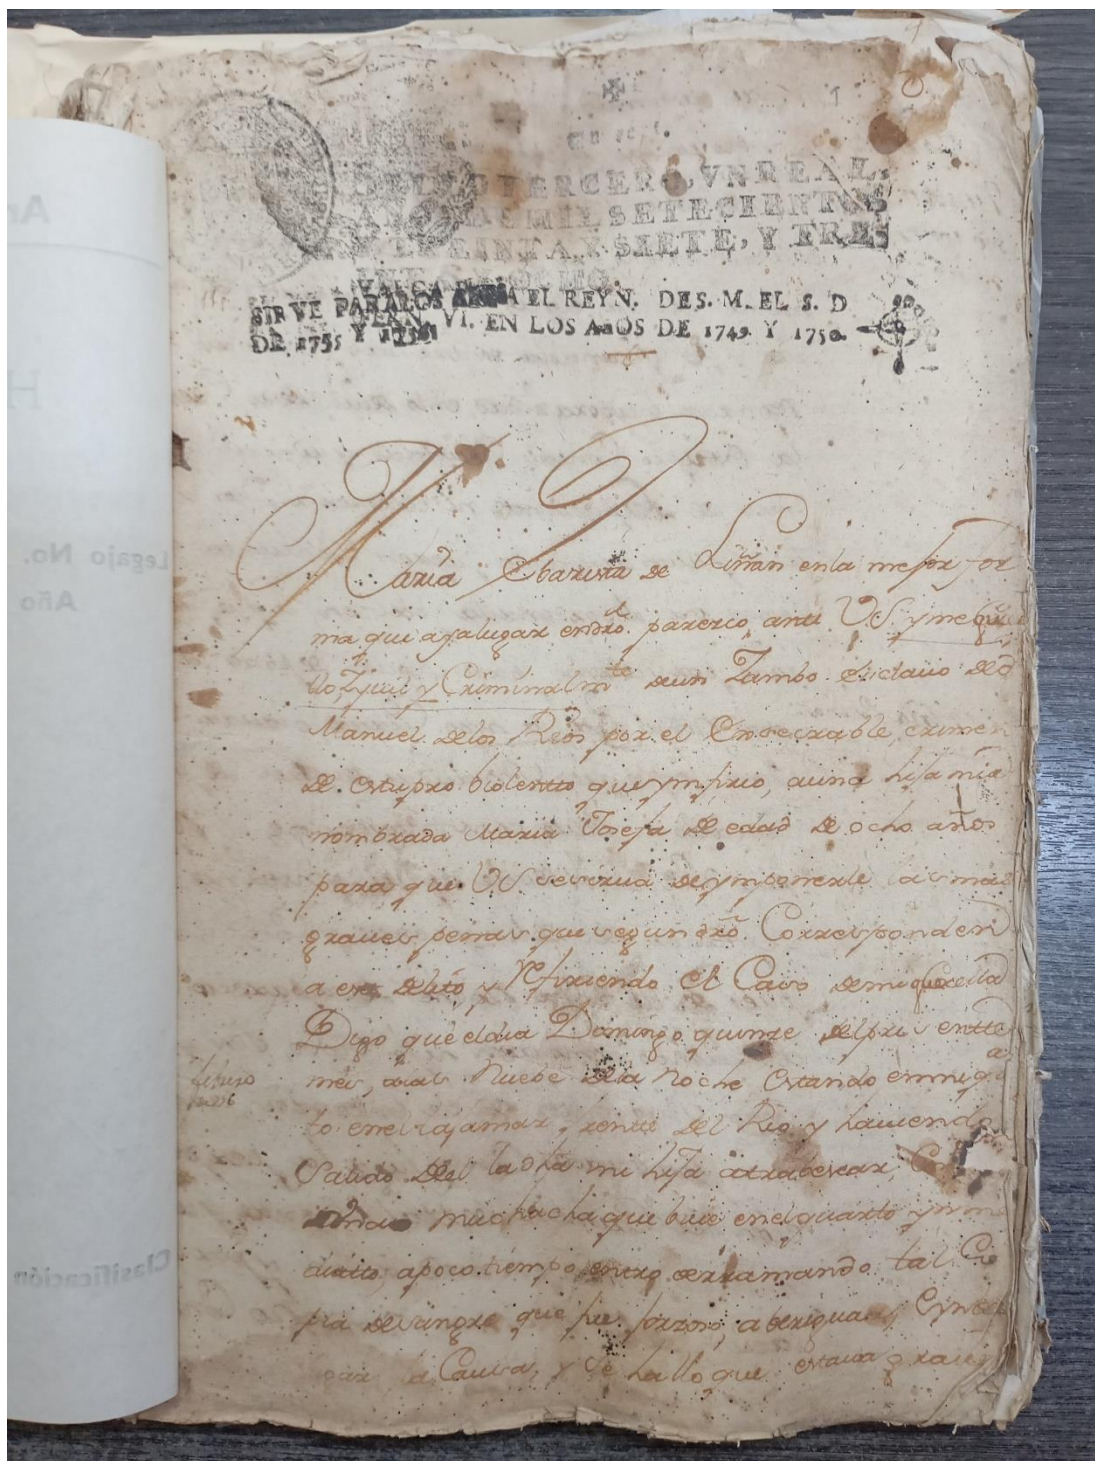 1
SELLO TERCERO, VN REAL,
AÑOS DE MIL SETECIENTOS
TREINTA Y SIETE, Y TREI
SIRVE PARA LOS A EL REYN. DE S. M. EL S. D
FERN. VI. EN LOS AñOS DE 1749 Y 1750.
DE 1755 Y
Maria Ebarista de Liñan en la mejor for
ma que aya lugar en dro. paresco, ante VS. y me que
llo Zyuil y Criminalmte de un Zambo esclauo de D
Manuel de los Rios por el execrable crimen
de estupro biolentto que ynfirio, a una hija mia
nombrada Maria Josefa de edad de ocho años
para que VS se sirua de ymponerle las mas
graues penas que segun dro. Corresponden
a este delito, y Refiriendo el Caso de mi querella
Digo que el dia Domingo quinse del pres entte
mes, a las Nuebe de la Noche estando en mi qua
to en el tajamar, frente del Rio y hauiendo
Salido del la dha mi hija atrabesar,
muchacha que biue en el quarto ynme
diatto, a poco tiempo entro derramando tal Co
pia de sangre que fue forzoso, aberiguar,
la Causa, y se hallo que estaua graue
Legajo No.
Año
Clasificación